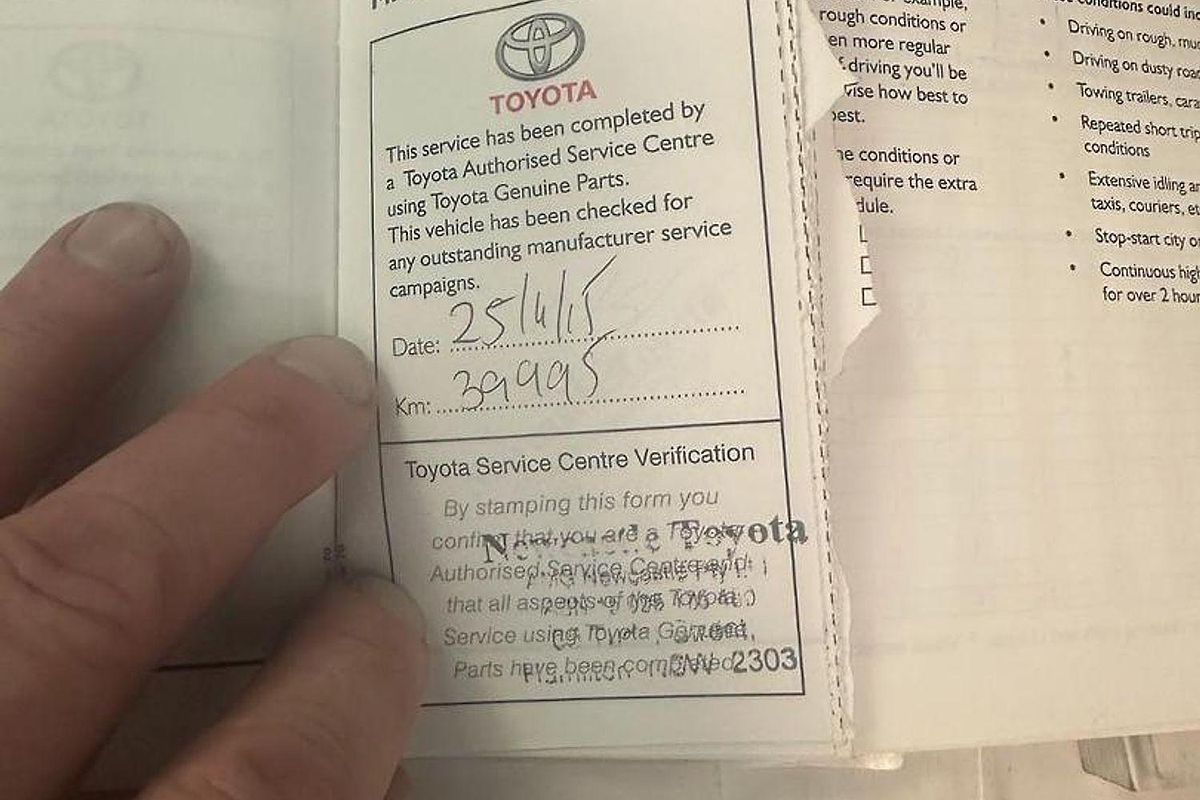 TOYOTA
This service has been completed by
a Toyota Authorised Service Centre
using Toyota Genuine Parts.
This vehicle has been checked for
any outstanding manufacturer service
campaigns.
Date: 25/4/15
Km: 39995
Toyota Service Centre Verification
By stamping this form you
confirm that you are a Toyota
Authorised Service Centre and
that all aspects of the Toyota
Service using Toyota Genuine
Parts have been completed.
Toyota
NSW 2303
rough conditions or
more regular
driving you'll be
how best to
conditions or
require the extra
conditions could
• Driving on rough,
• Driving on dusty
• Towing trailers,
• Repeated short
conditions
• Extensive idling
taxis, couriers,
• Stop-start city
• Continuous
for over 2